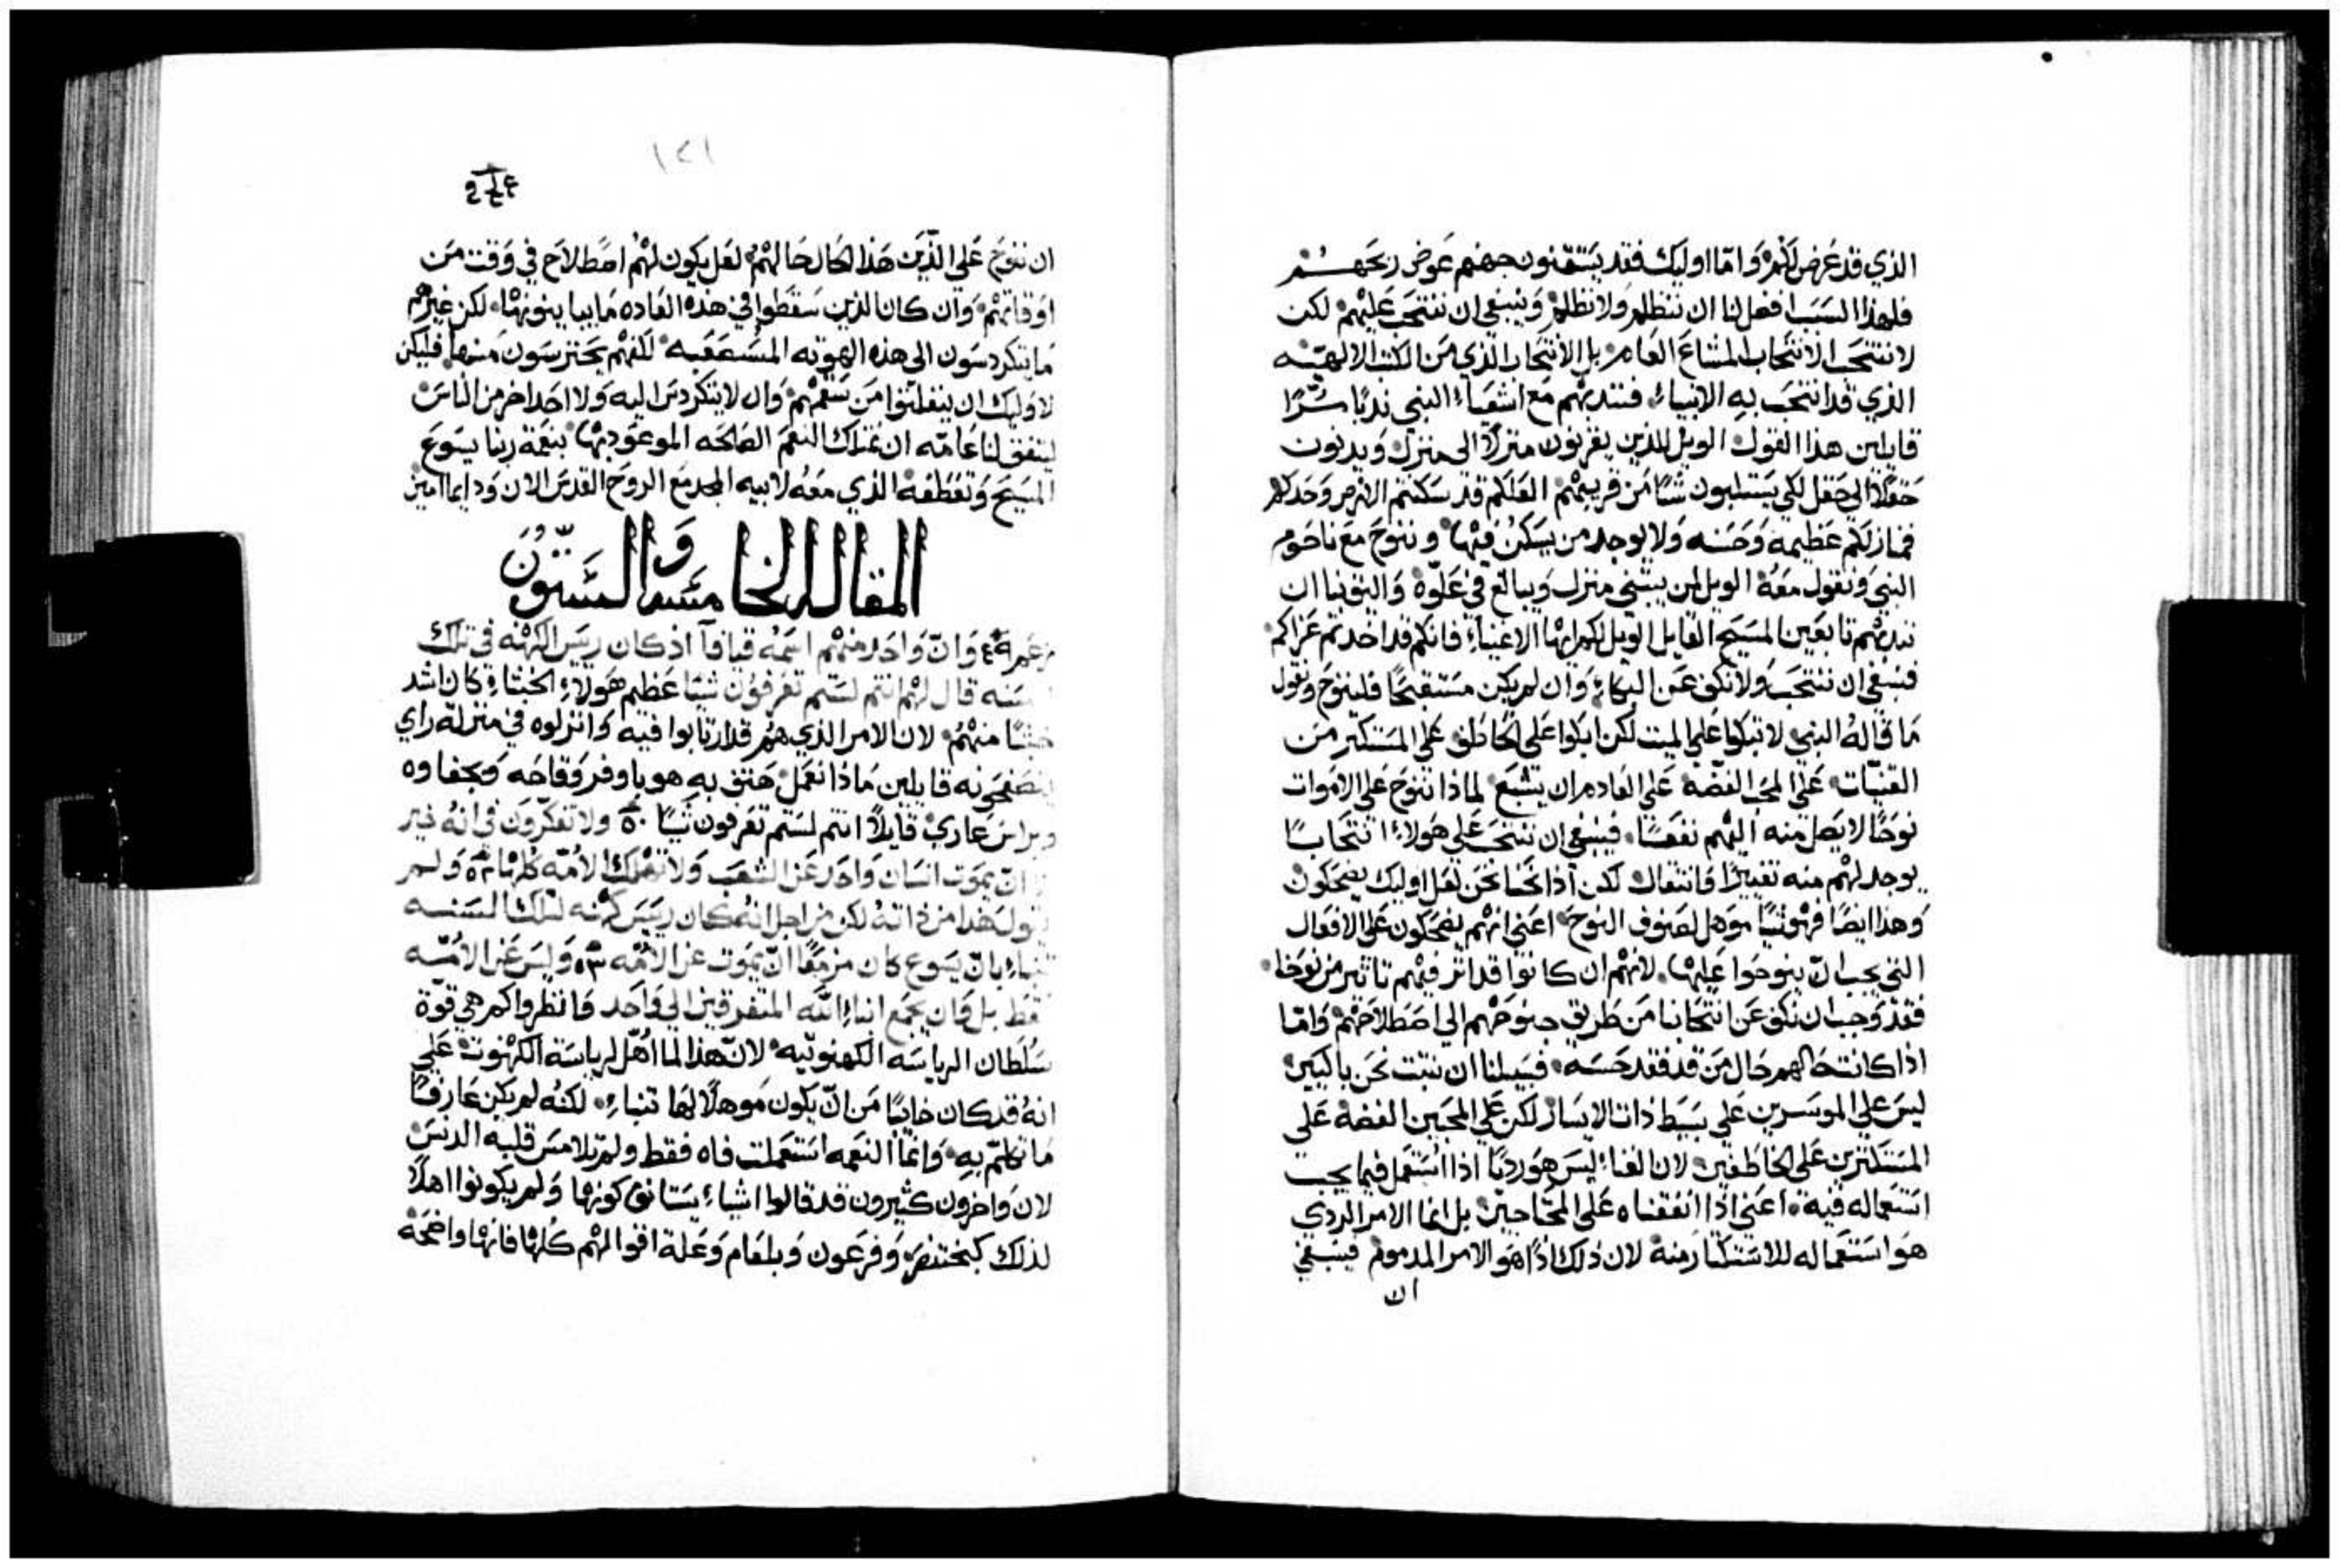 الذي قد عرض لكم واما اوليك فقد يستقنون جهنم عوض ربحهم
فلهذا السبب افضل لنا ان ننظلم ولا نظلم وينبغي ان ننتحب عليهم لكن
لا ننتحب الانتحاب المشاع العام بل الانتحاب الذي من الكتب الالهيه
الذي قد انتحب به الانبياء فنندبهم مع اشعياء النبي ندبا مرا
قايلين هذا القول الويل للذين يقربون منزلا الى منزل ويدنون
حقلا الى حقل لكي يستلبون شيا من قريبهم العلكم قد سكنتم الارض وحدكم
فمنازلكم عظيمه وحسنه ولا يوجد من يسكن فيها وننوح مع ناحوم
النبي ونقول معه الويل لمن يبتني منزله ويبالغ في علوه واليق بنا ان
نندبهم تابعين المسيح القايل الويل لكم ايها الاغنياء فانكم قد اخذتم عزاكم
فينبغي ان ننتحب ولا نكف عن البكاء وان لم يكن مستقبحا فلينوح ونقول
ما قاله النبي لا تبكوا على الميت لكن ابكوا على الخاطف على المستكثر من
القنيات على المحب الفضة على العادم ان يشبع لماذا ننوح على الاموات
نوحا لا يصل منه اليهم نفعا فينبغي ان ننتحب على هولاء انتحابا
يوجد لهم منه تغييرا وانتقال لكن اذا نحنا نحن لعل اوليك يضحكون
وهذا ايضا فهو شيا موهل لصنوف النوح اعني انهم يضحكون على الافعال
التي يجب ان ينوحوا عليها لانهم ان كانوا قد اثر فيهم تاثير من نوحنا
فقد وجب ان نكف عن انتحابنا من طريق جنوحهم الى اصطلاحهم واما
اذا كانت حالهم حال من قد فقد حسه فسبيلنا ان نثبت نحن باكين
ليس على الموسرين على بسيط ذات الايسار لكن على المحبين الفضة على
المستكثرين على الخاطفين لان الغناء ليس هو رديا اذا استعمل فيما يجب
استعماله فيه اعني اذا انفقناه على المحتاجين بل انما الامر الردي
هو استعماله للاستكثار منه لان ذلك اذا هو الامر المذموم فينبغي
ان
١٢١
ان ننوح على الذين هذا الحال حالهم لعل يكون لهم اصطلاح في وقت من
اوقاتهم وان كان الذين سقطوا في هذه العاده ما يبا ينونها لكن غيرهم
ما يتكردسون الى هذه الهوته المستصعبه لكنهم يحترسون منها فليكن
لاوليك ان ينفلتوا من سقمهم وان لا يتكردس اليه ولا احد اخر من الناس
ليتفق لنا عامه ان نمتلك النعم الصالحه الموعود بها بنعمة ربنا يسوع
المسيح وتعطفه الذي معه لابيه المجد مع الروح القدس الان ودايما امين
المقاله الخامسه والستون
وان واحد منهم اسمه قيافا اذ كان ريس الكهنه في تلك
السنه قال لهم انتم لستم تعرفون شيا عظيم هولاء الخبثاء كان اشد
خبثا منهم لان الامر الذي هم قد ارتابوا فيه وانزلوه في منزلة راي
يتصفحونه قايلين ماذا نعمل هتف به هو باوفر وقاحه وبجفاوه
وبراس عاري قايلا انتم لستم تعرفون شيا ٥٠ ولا تفكرون في انه خير
ان يموت انسان واحد عن الشعب ولا تهلك الامه كلها ولم
يقول هذا من ذاته لكن من اجل انه كان ريس كهنه لتلك السنه
تنباء بان يسوع كان مزمعا ان يموت عن الامه وليس عن الامه
فقط بل وان يجمع ابناء الله المتفرقين الى واحد فانظروا كم هي قوة
سلطان الرياسه الكهنوتيه لان هذا لما اهل لرياسة الكهنوت على
انه قد كان خايبا من ان يكون موهلا لها تنباء لكنه لم يكن عارفا
ما تكلم به وانما النعمه استعملت فاه فقط ولم تلامس قلبه الدنس
لان واخرون كثيرون قد قالوا اشياء يستانف كونها ولم يكونوا اهلا
لذلك كبختنصر وفرعون وبلعام وعلة اقوالهم كلها فانها واضحة